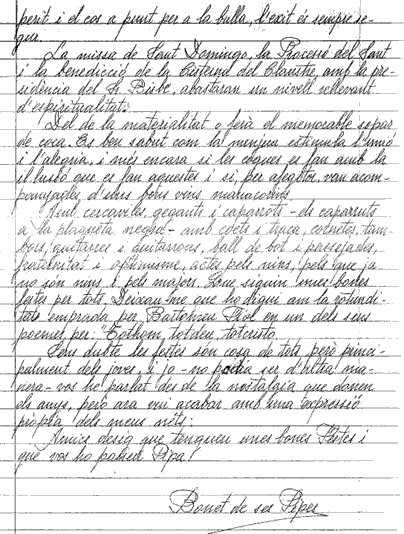 perit i el cos a punt per a la bulla, l'èxit és sempre se-
gur.
La missa de Sant Domingo, la Processó del Sant
i la benedicció de la Cisterna del Claustre, amb la pre-
sidència del Sr. Bisbe, abastaran un nivell rellevant
d'espiritualitat.
Del de la materialitat o farà el memorable sopar
de coca. És ben sabut com la menjua estimula l'unió
i l'alegria, i més encara si les coques es fan amb la
il·lusió que es fan aquestes i si, per afegitó, van acom-
panyades d'uns bons vins manacorins.
Amb cercaviles, gegants i caparrots - els caparruts
a la plagueta negra - amb coets i traca, cornetes, tam-
bors, guitarres i guitarrons, ball de bot i passejades,
fraternitat i optimisme, actes pels nins, pels que ja
no són nins i pels majors. Que siguin unes bones
festes per tots. Deixau-me que ho digui amb la rotundi-
tat emprada per Bartomeu Fiol en un dels seus
poemes per: "Tothom, totdeu, totcristo.
Sens dubte les festes són cosa de tots, però princi-
palment dels joves, i jo - no podia ser d'altra ma-
nera - vos he parlat des de la nostalgia que donen
els anys, però ara vui acabar amb una expressió
pròpia dels meus néts:
Amics desig que tengueu unes bones Festes i
que vos ho passeu Pipa!
Bonet de ses Pipes